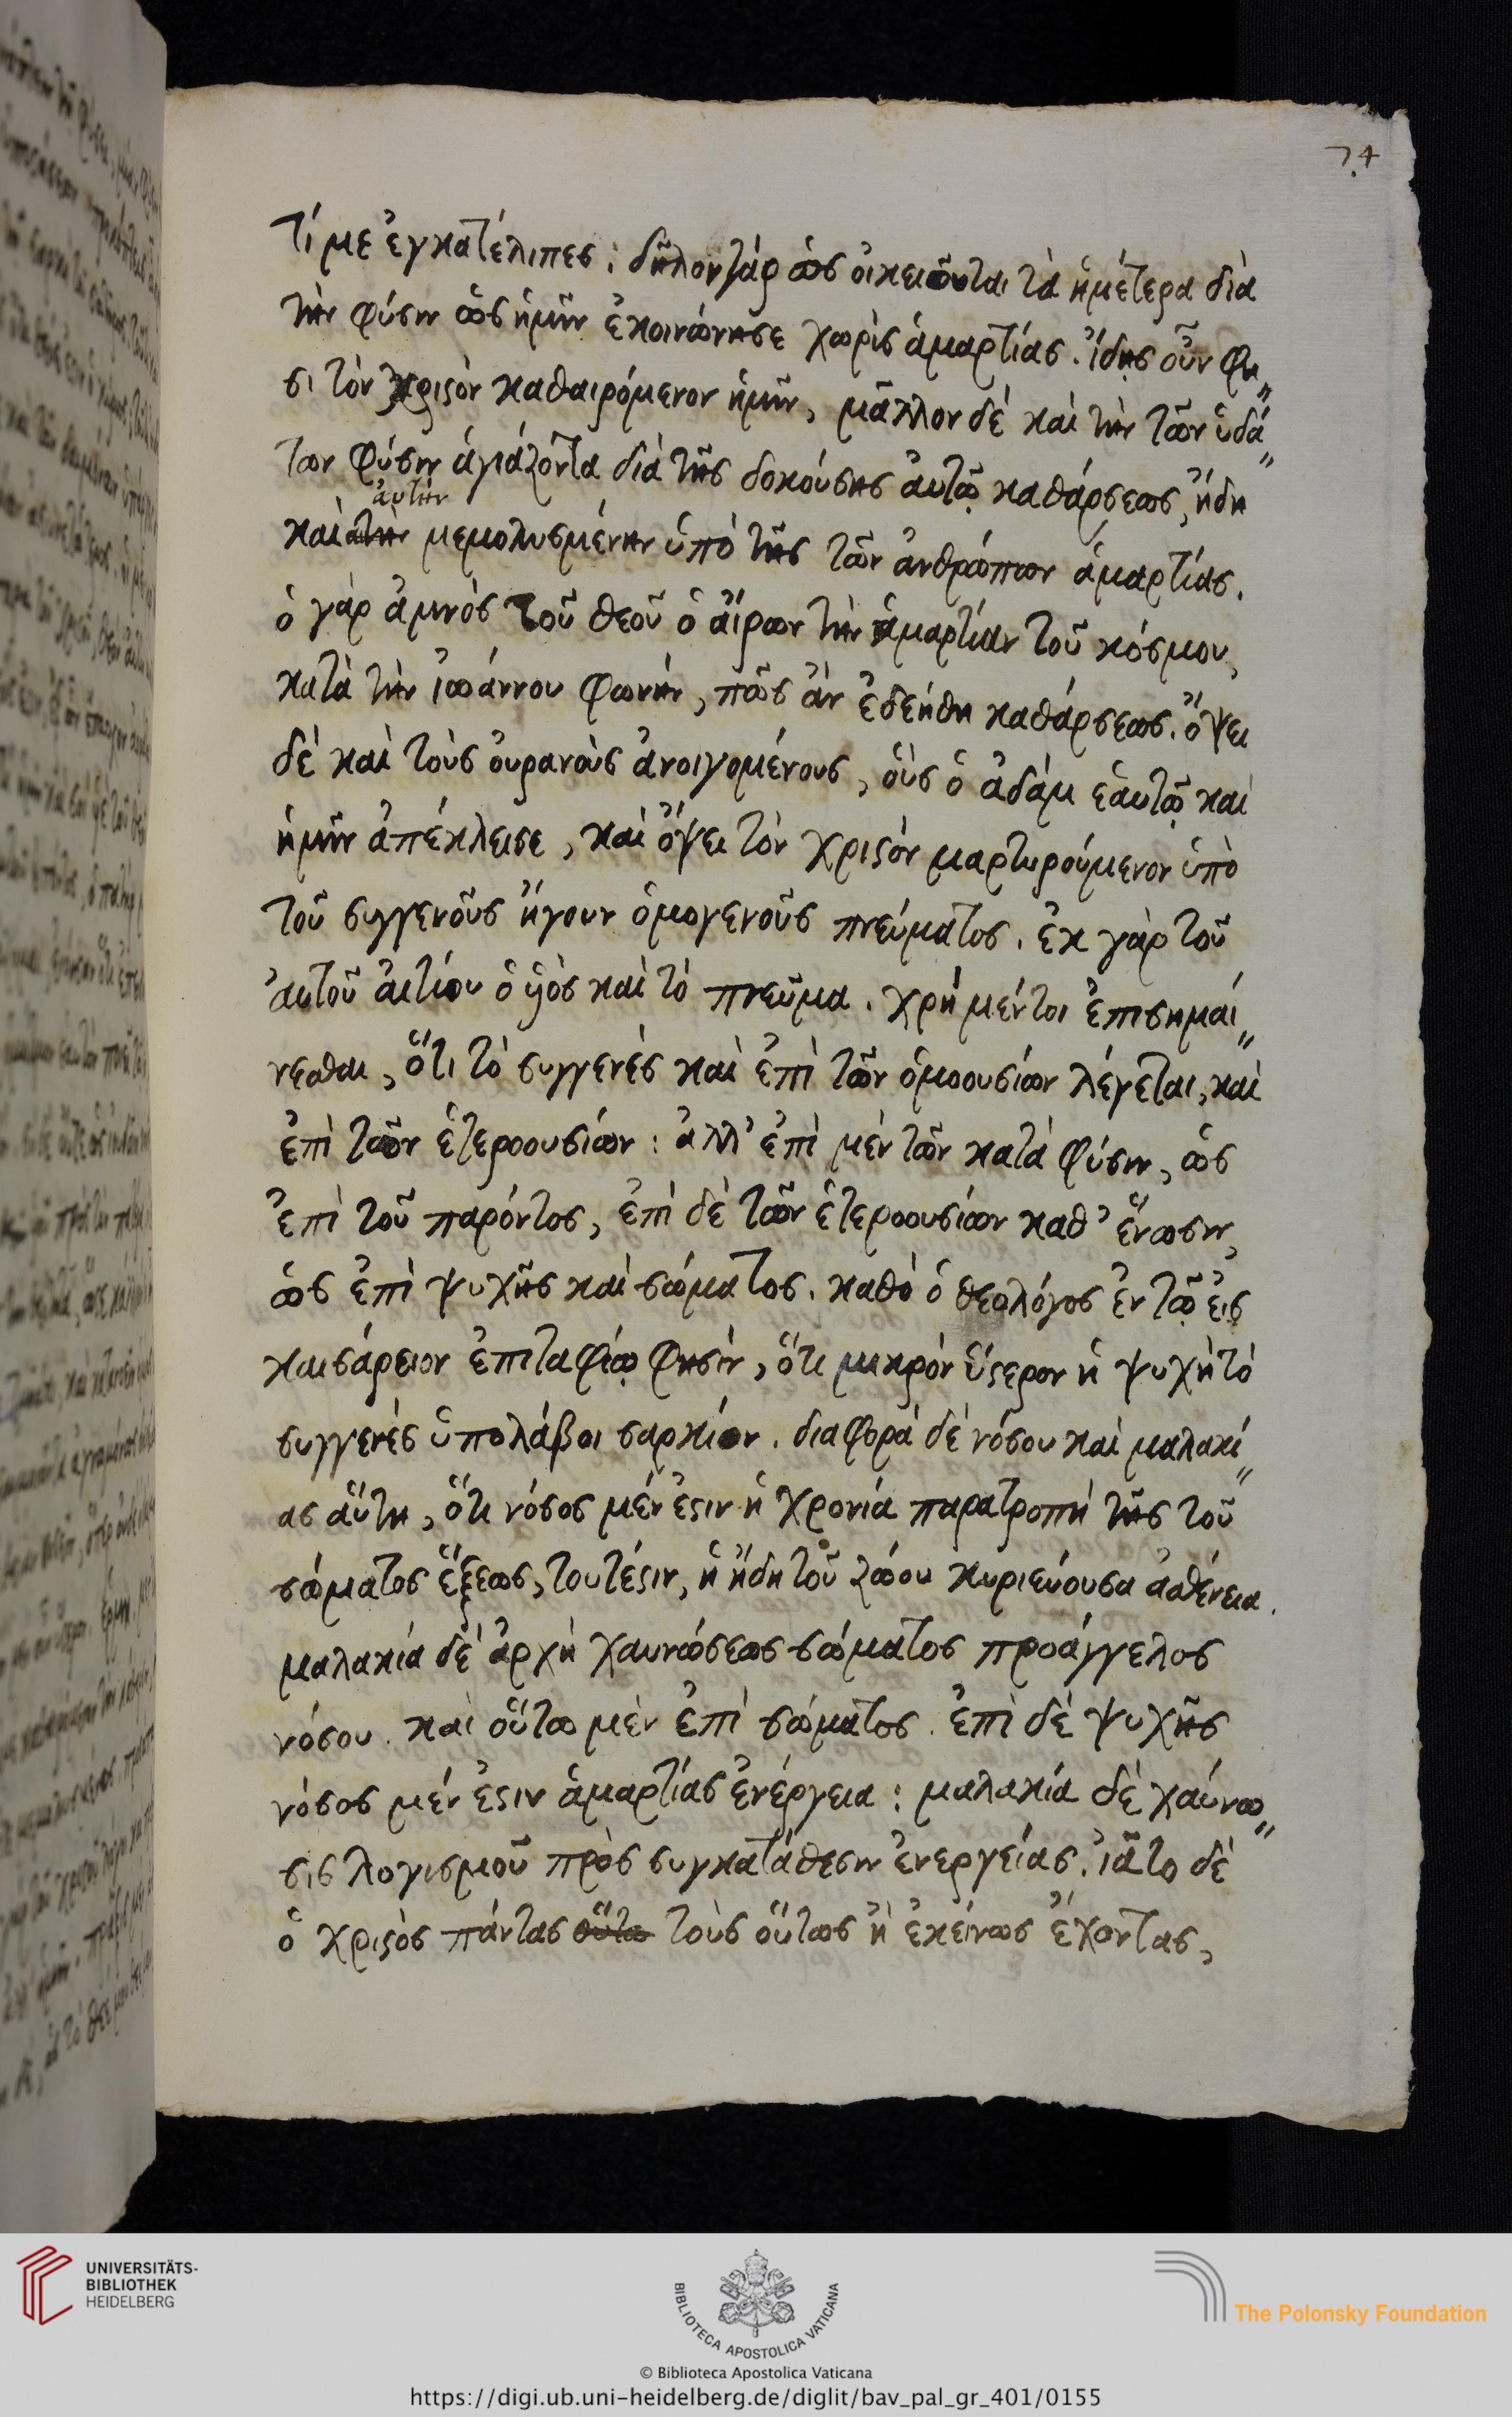 74
τί με ἐγκατέλιπες; δῆλον γὰρ ὡς οἰκειοῦται τὰ ἡμέτερα διὰ
τὴν φύσιν ὡς ἡμῖν ἐκοινώνησε χωρὶς ἁμαρτίας. ἴδῃς οὖν φη〃
σι τὸν χριϛὸν καθαιρόμενον ἡμῖν, μᾶλλον δὲ καὶ τὴν τῶν ὑδά〃
των φύσιν ἁγιάζοντα διὰ τῆς δοκούσης ἀυτῷ καθάρσεως, ἤδη
ἀυτὴν
καὶ μεμολυσμένην ὑπὸ τῆς τῶν ἀνθρώπων ἁμαρτίας.
ὁ γὰρ ἀμνὸς τοῦ θεοῦ ὁ ἄιρων τὴν ἁμαρτίαν τοῦ κόσμου,
κατὰ τὴν ἰωάννου φωνὴν, πῶς ἂν ἐδεήθη καθάρσεως. ὄψει
δὲ καὶ τοὺς ὀυρανοὺς ἀνοιγομένους, ὁὺς ὁ ἀδὰμ ἑαυτῷ καὶ
ἡμῖν ἀπέκλεισε, καὶ ὄψει τὸν χριϛὸν μαρτυρούμενον ὑπὸ
τοῦ συγγενοῦς ἤγουν ὁμογενοῦς πνεύματος. ἐκ γὰρ τοῦ
ἀυτοῦ ἀιτίου ὁ ὑιὸς καὶ τὸ πνεῦμα. χρὴ μέντοι ἐπισημαί〃
νεσθαι, ὅτι τὸ συγγενὲς καὶ ἐπὶ τῶν ὁμοουσίων λέγεται, καὶ
ἐπὶ τῶν ἑτεροουσίων: ἀλλ' ἐπὶ μὲν τῶν κατὰ φύσιν, ὡς
ἐπὶ τοῦ παρόντος, ἐπὶ δὲ τῶν ἑτεροουσίων καθ' ἕνωσιν,
ὡς ἐπὶ ψυχῆς καὶ σώματος. καθὸ ὁ θεολόγος ἐν τῷ ἐις
καισάρειον ἐπιταφίῳ φησὶν, ὅτι μικρὸν ὕϛερον ἡ ψυχὴ τὸ
συγγενὲς ὑπολάβοι σαρκίον. διαφορὰ δὲ νόσου καὶ μαλακί〃
ας ἅυτη, ὅτι νόσος μέν ἐϛιν ἡ χρονία παρατροπὴ τῆς τοῦ
σώματος ἕξεως, τουτέϛιν, ἡ ἤδη τοῦ ζώου κυριεύουσα ἀσθένεια.
μαλακία δὲ ἀρχὴ χαυνώσεως σώματος προάγγελος
νόσου. καὶ ὅυτω μὲν ἐπὶ σώματος. ἐπὶ δὲ ψυχῆς
νόσος μέν ἐϛιν ἁμαρτίας ἐνέργεια: μαλακία δὲ χαύνω〃
σις λογισμοῦ πρὸς συγκατάθεσιν ἐνεργείας. ἰᾶτο δὲ
ὁ χριϛὸς πάντας ὅυτω τοὺς ὅυτως ἢ ἐκείνως ἔχοντας,
UNIVERSITÄTS-
BIBLIOTHEK
HEIDELBERG
BIBLIOTECA APOSTOLICA VATICANA
The Polonsky Foundation
© Biblioteca Apostolica Vaticana
https://digi.ub.uni-heidelberg.de/diglit/bav_pal_gr_401/0155